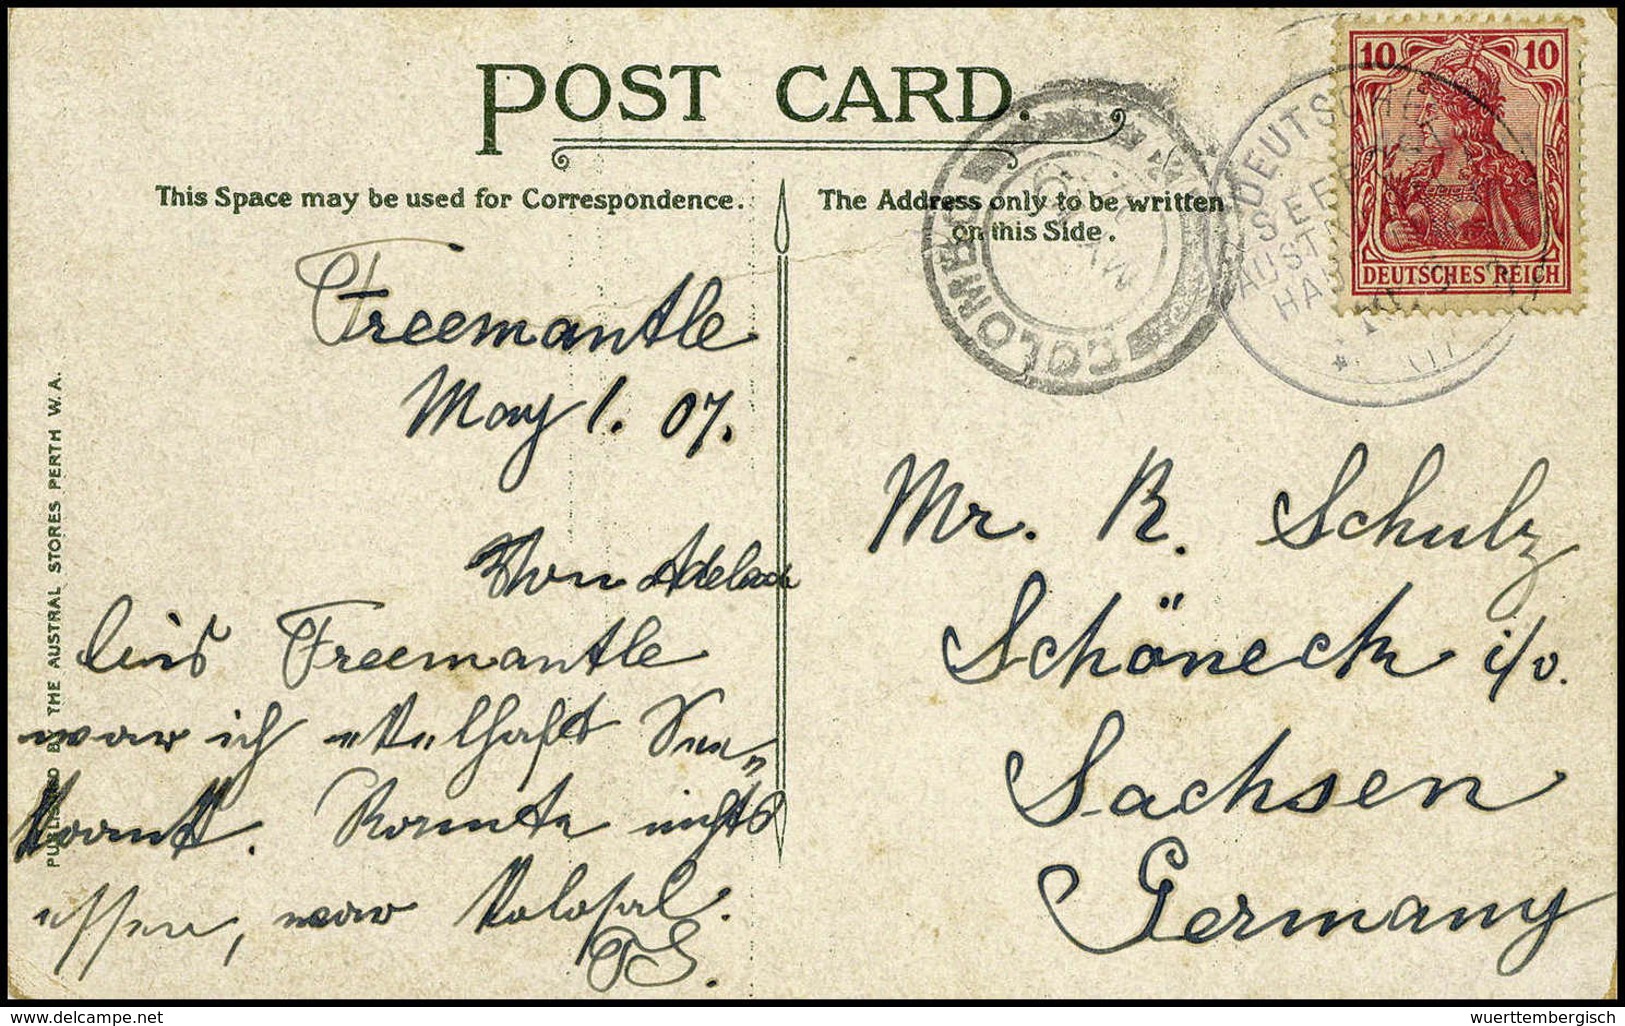 POST CARD.
This Space may be used for Correspondence.
The Address only to be written
on this Side.
10 10
DEUTSCHES REICH
DEUTSCHE
SEEPOST
COLOMBO
Freemantle
May 1. 07.
Von Adelaide
bis Freemantle
war ich ekelhaft See-
krank. Konnte nichts
essen, war kolosal.
Mr. R. Schulz
Schöneck i/v.
Sachsen
Germany
PUBLISHED BY THE AUSTRAL STORES PERTH W.A.
delcampe.net
wuerttembergisch